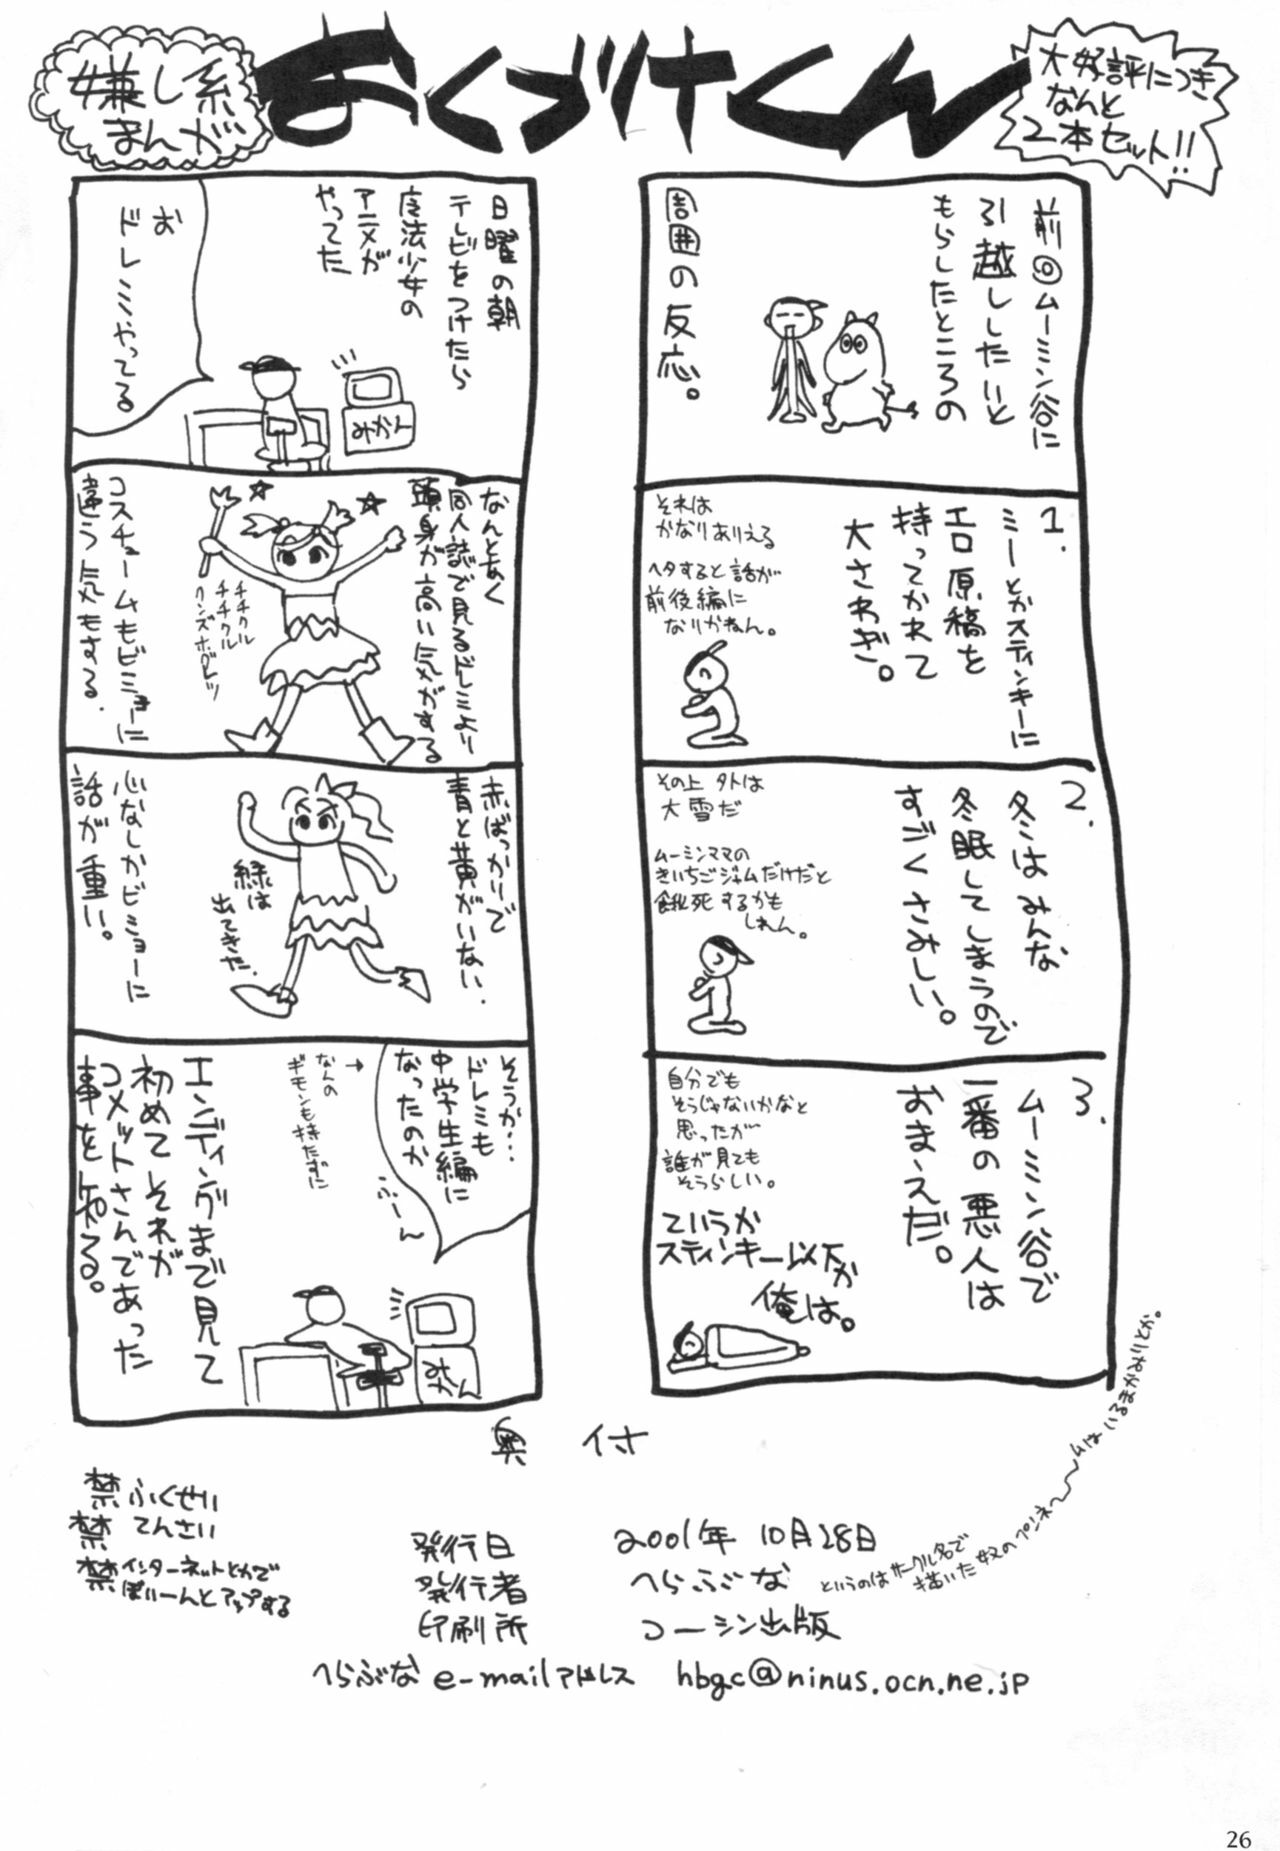 嫌し系
まんが
おくづけくん
大好評につき
なんと
2本セット!!
前回ムーミン谷に
引越ししたいと
もらしたところの
周囲の反応。
1.
ミーとかスティンキーに
エロ原稿を
持ってかれて
大さわぎ。
それは
かなりありえる
ヘタすると話が
前後編に
なりかねん。
2.
冬はみんな
冬眠してしまうので
すごくさみしい。
その上外は
大雪だ
ムーミンママの
きいちごジャムだけだと
餓死するかも
しれん。
3.
ムーミン谷で
一番の悪人は
おまえだ。
自分でも
そうじゃないかなと
思ったが
誰が見ても
そうらしい。
ていうか
スティンキー以下か
俺は。
日曜の朝
テレビをつけたら
魔法少女の
アニメが
やってた
お
ドレミやってる
みかん
なんとあく
同人誌で見るドレミより
頭身が高い気がする
チチクル
チチクル
コスチュームもビミョーに
違う気もする.
赤ばっかりで
青と黄がいない.
緑は
出てきた.
心なしかビミョーに
話が重い。
そうか…
ドレミも
中学生編に
なったのか
ふーん
なんの
ギモンも持たずに
→
みかん
エンディングまで見て
初めてそれが
コメットさんであった
事を知る。
奥付
禁ふくせい
禁てんさい
禁インターネットとかで
ばいーんとアップする
発行日 2001年10月28日
発行者 へらぶな
というのはサークル名で
描いた奴のペンネ〜ムはいるまかみりとか。
印刷所 コーシン出版
へらぶな e-mailアドレス hbgc@ninus.ocn.ne.jp
26